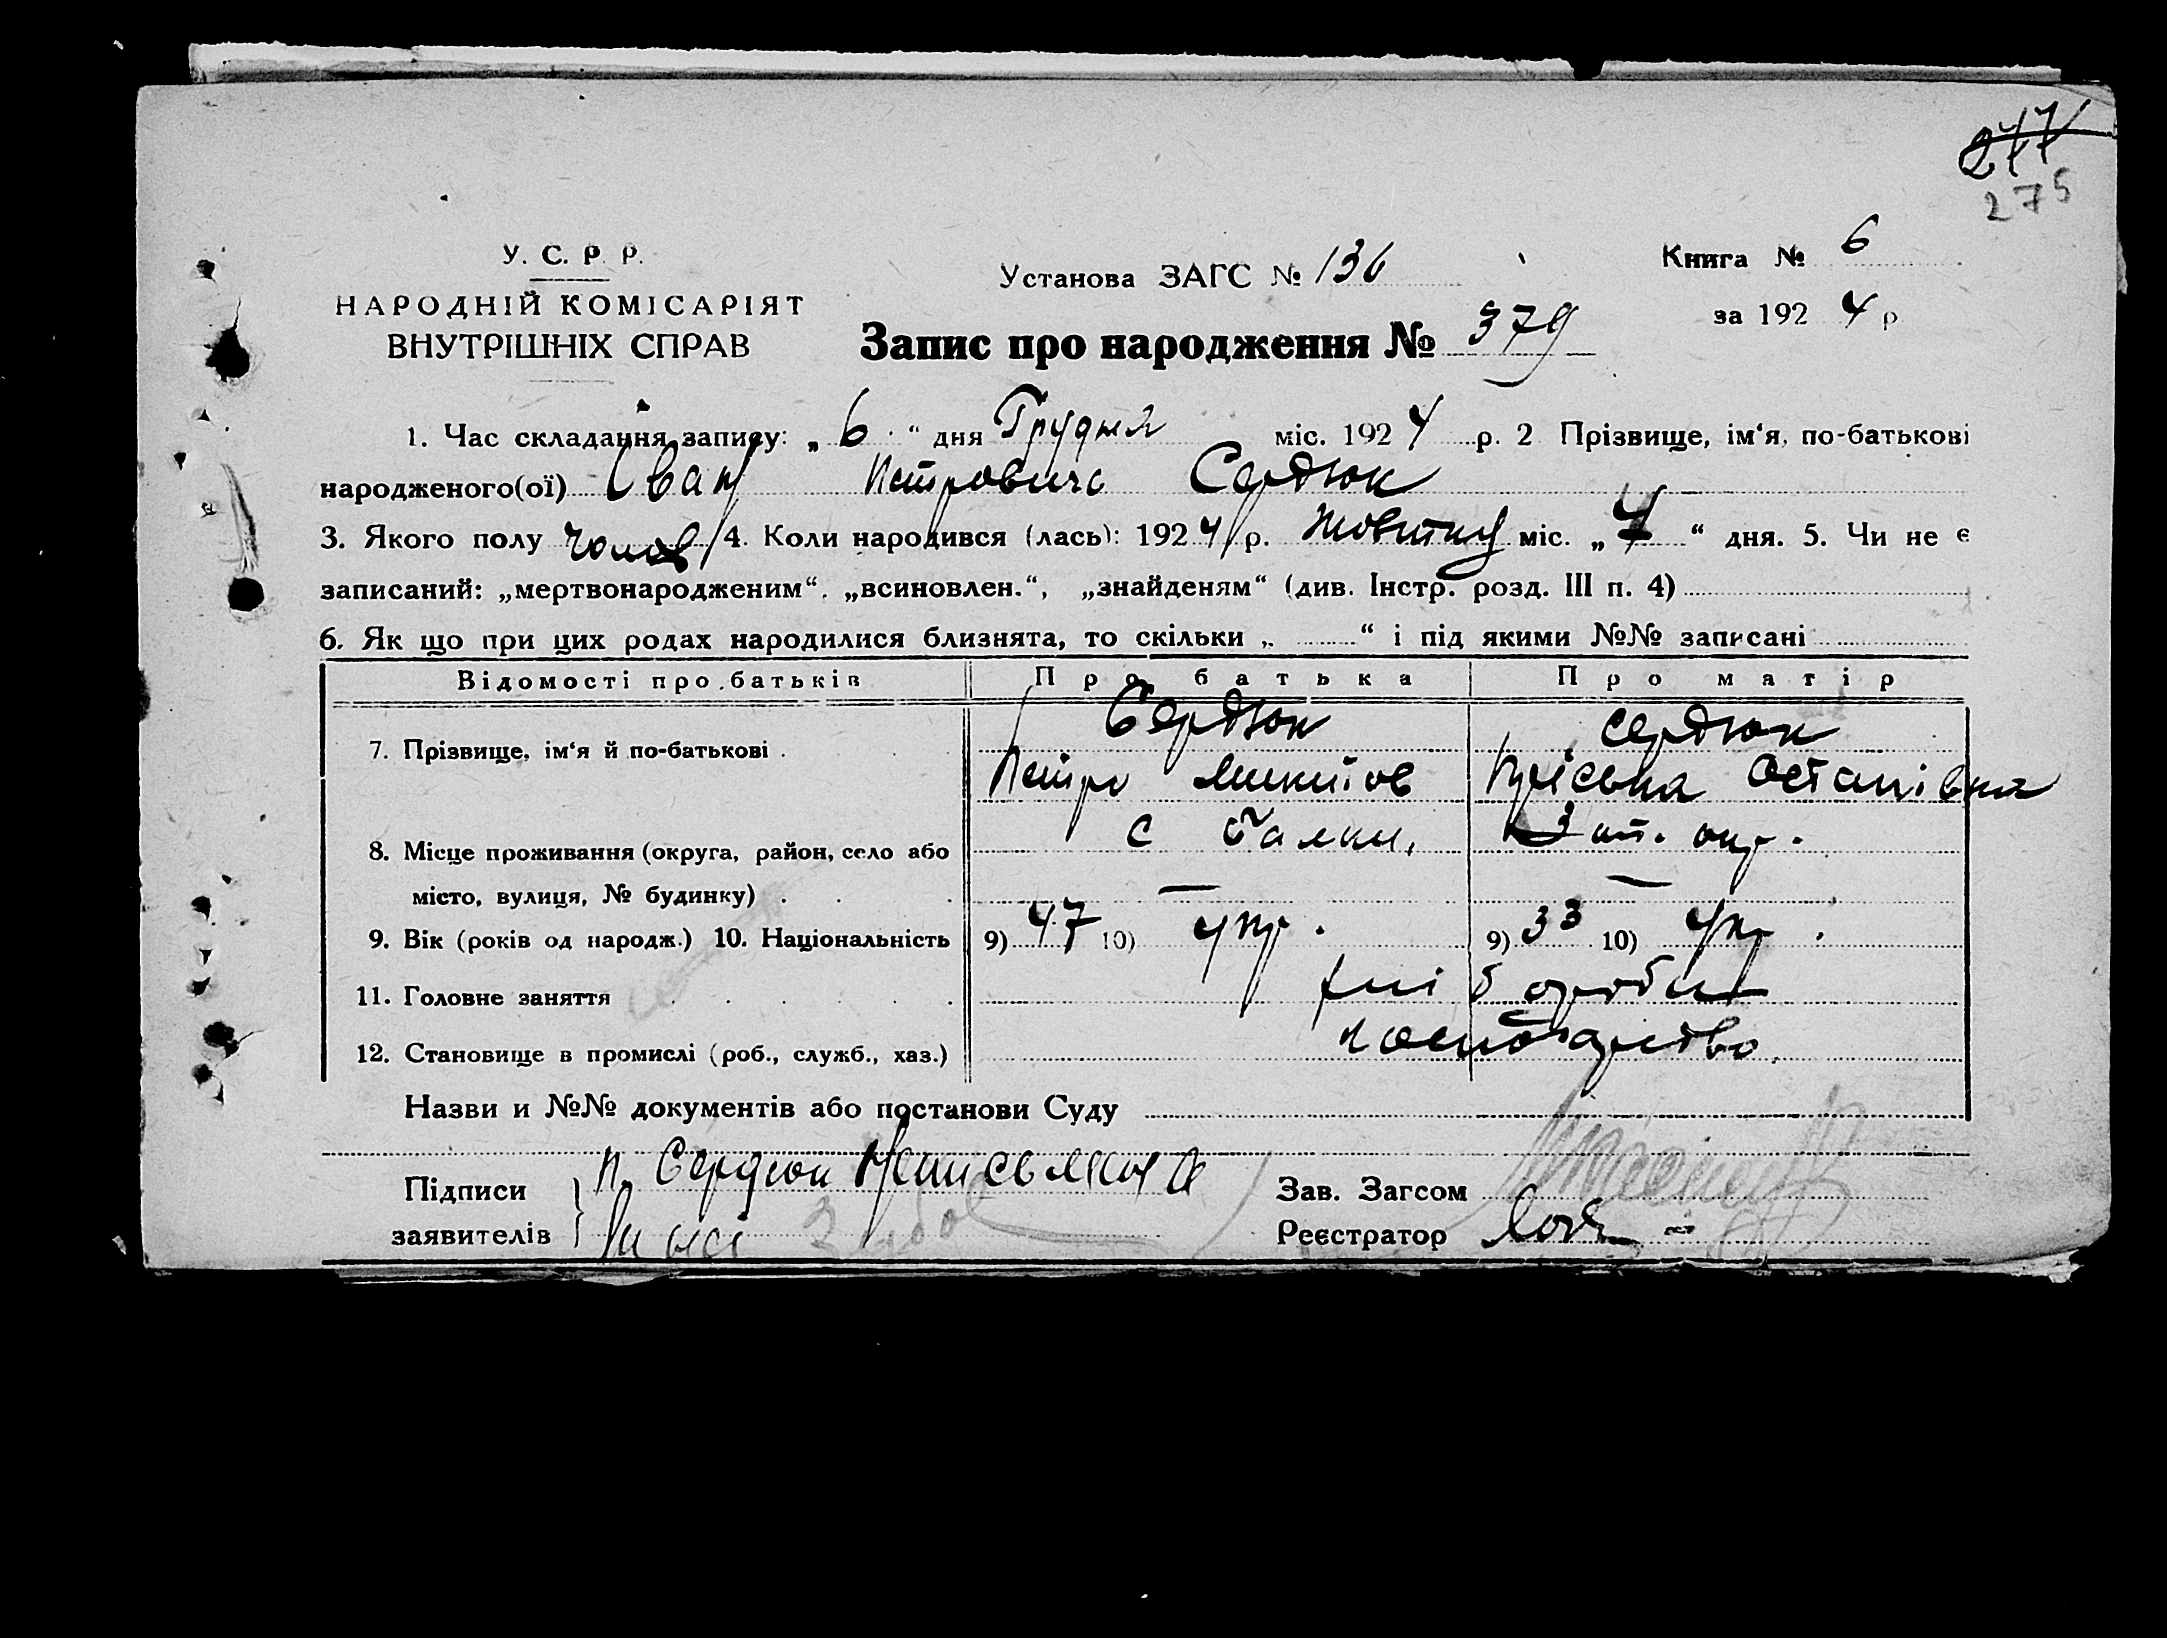 277
275
У. С. Р. Р.
НАРОДНІЙ КОМІСАРІЯТ
ВНУТРІШНІХ СПРАВ
Установа ЗАГС № 136
Книга № 6
за 1924 р.
Запис про народження № 379
1. Час складання запису: „6“ дня Грудня міс. 1924 р. 2 Прізвище, ім‘я, по-батькові
народженого(ої) Іван Петрович Сердюк
3. Якого полу чолов 4. Коли народився (лась): 1924 р. Жовтня міс. „7“ дня. 5. Чи не є
записаний: „мертвонародженим“, „всиновлен.“, „знайденям“ (див. Інстр. розд. III п. 4)
6. Як що при цих родах народилися близнята, то скільки „ “ і під якими №№ записані
Відомості про батьків Про батька Про матір
7. Прізвище, ім‘я й по-батькові . Сердюк Сердюк
Петро Микитов Остапівна
8. Місце проживання (округа, район, село або с Балки, Зап. окр.
місто, вулиця, № будинку) . — —
9. Вік (років од народж.) 10. Національність 9) 47 10) укр. 9) 33 10) укр.
11. Головне заняття хліборобск
12. Становище в промислі (роб., служб., хаз.) господарство
Назви и №№ документів або постанови Суду
Підписи заявителів } П. Сердюк
Зав. Загсом
Реєстратор